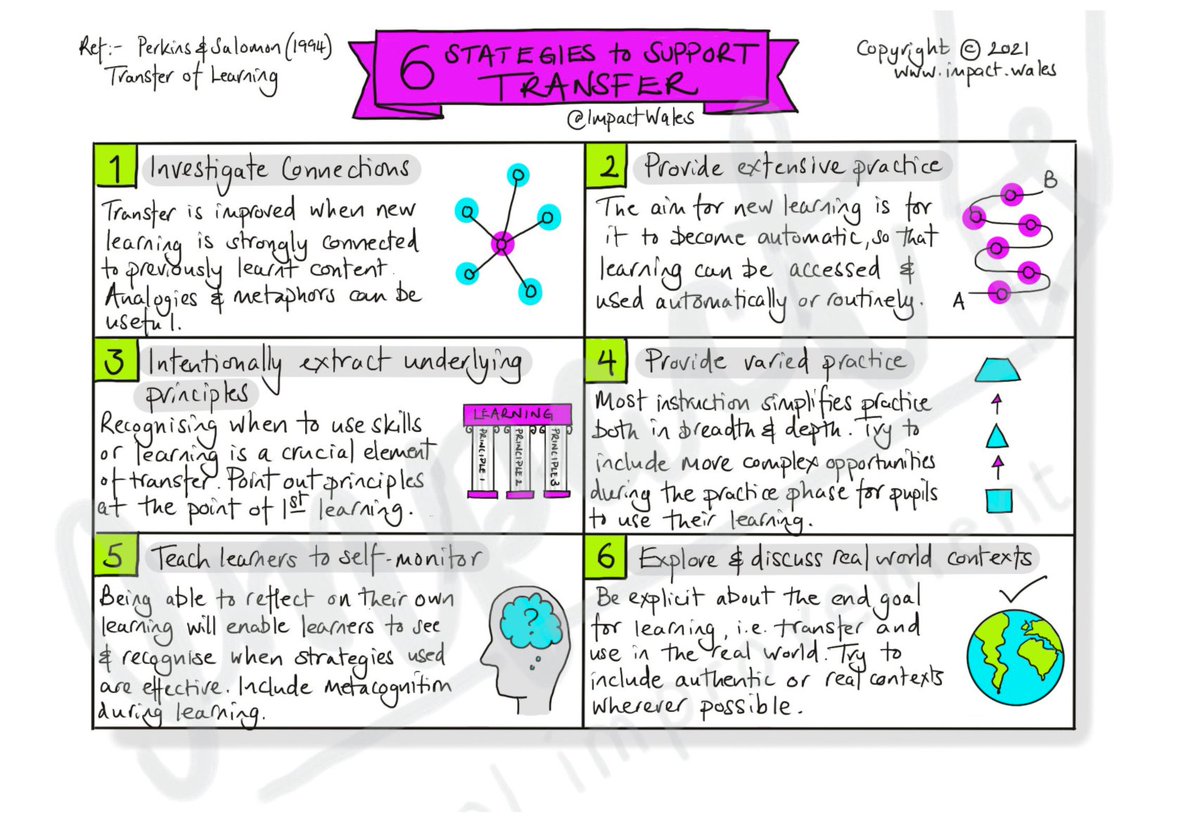 Ref:- Perkins & Salomon (1994)
Transfer of Learning
6 STATEGIES to SUPPORT
TRANSFER
@ImpactWales
Copyright © 2021
www.impact.wales
1 Investigate Connections
Transfer is improved when new
learning is strongly connected
to previously learnt content.
Analogies & metaphors can be
useful.
2 Provide extensive practice
The aim for new learning is for
it to become automatic, so that
learning can be accessed &
used automatically or routinely.
A
B
3 Intentionally extract underlying
principles
Recognising when to use skills
or learning is a crucial element
of transfer. Point out principles
at the point of 1st learning.
LEARNING
PRINCIPLE 1
PRINCIPLE 2
PRINCIPLE 3
4 Provide varied practice
Most instruction simplifies practice
both in breadth & depth. Try to
include more complex opportunities
during the practice phase for pupils
to use their learning.
5 Teach learners to self-monitor
Being able to reflect on their own
learning will enable learners to see
& recognise when strategies used
are effective. Include metacognition
during learning.
?
6 Explore & discuss real world contexts
Be explicit about the end goal
for learning, i.e. transfer and
use in the real world. Try to
include authentic or real contexts
wherever possible.